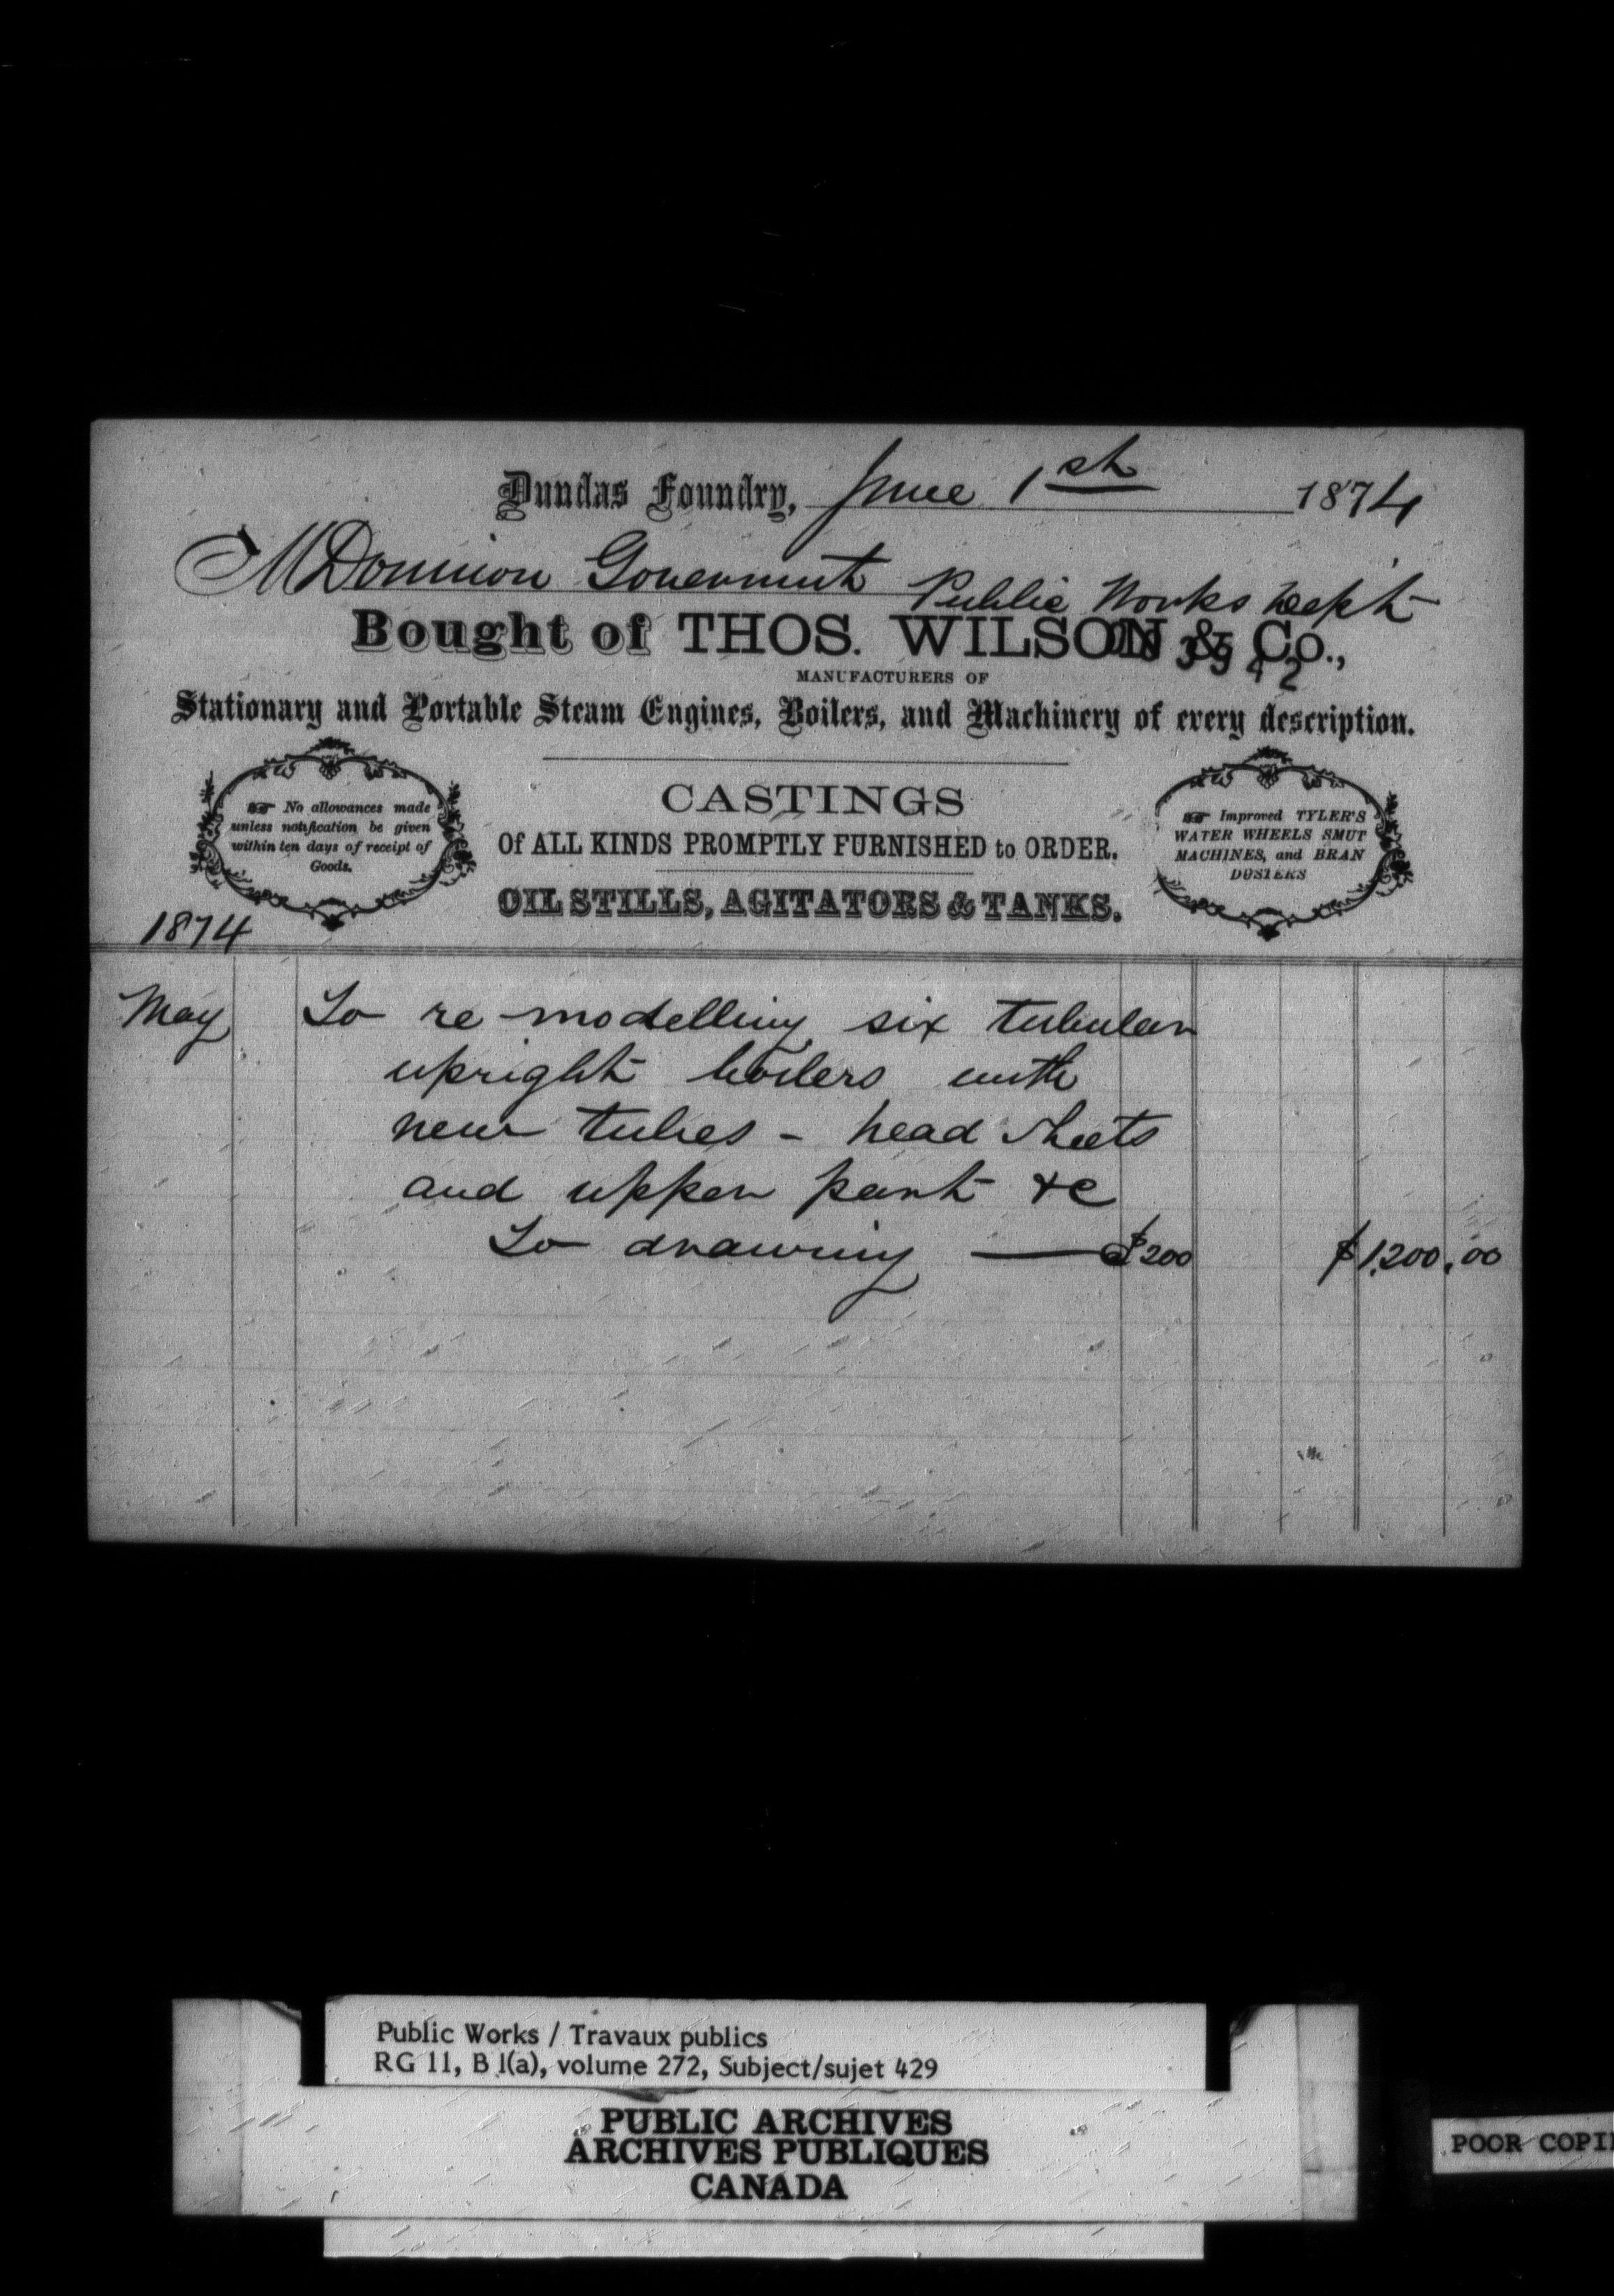 Dundas Foundry, June 1st 1874
M Dominion Goverment Public Works Dept
Bought of THOS. WILSON & Co.,
MANUFACTURERS OF
Stationary and Portable Steam Engines, Boilers, and Machinery of every description.
CASTINGS
Of ALL KINDS PROMPTLY FURNISHED to ORDER.
OIL STILLS, AGITATORS & TANKS.
No allowances made
unless notification be given
within ten days of receipt of
Goods.
Improved TYLER'S
WATER WHEELS SMUT
MACHINES, and BRAN
DUSTERS
1874
May To re-modelling six tubular
upright boilers with
new tubes - head sheets
and upper part &c
To drawing — @ $200 $1,200.00
Public Works / Travaux publics
RG 11, B 1(a), volume 272, Subject/sujet 429
PUBLIC ARCHIVES
ARCHIVES PUBLIQUES
CANADA
POOR COPI